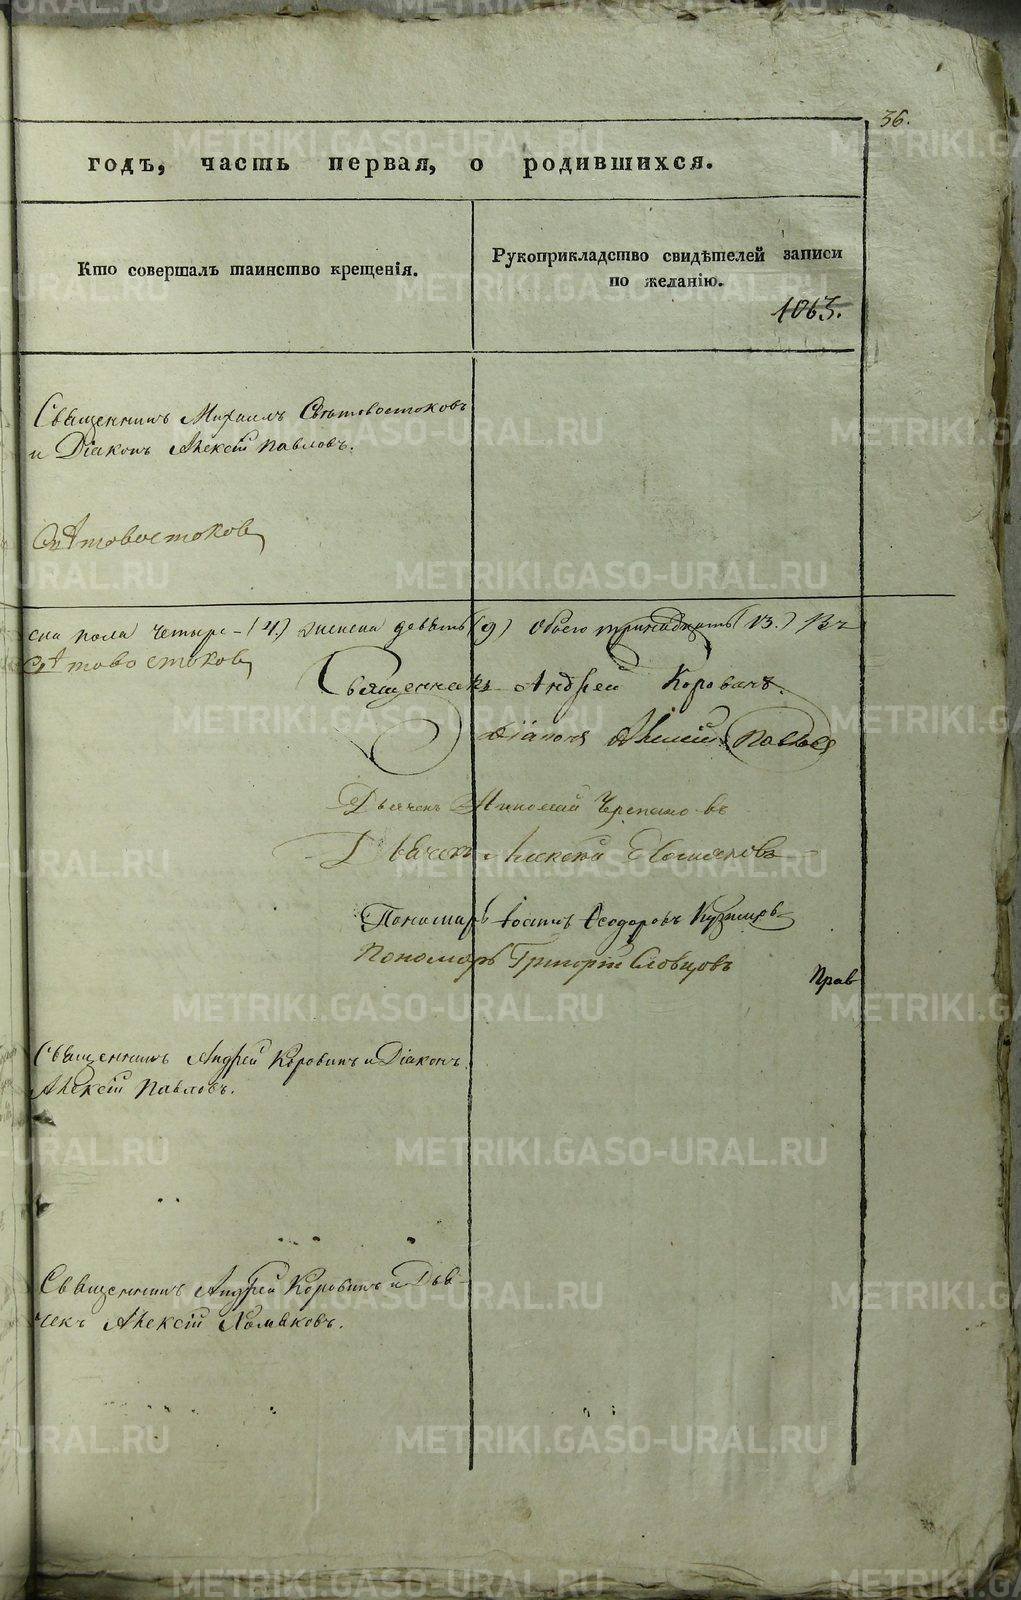 36.
годъ, часть первая, о родившихся.
Кто совершалъ таинство крещенія.
Рукоприкладство свидѣтелей записи
по желанію.
1063.
Священникъ Михаилъ Свѣтовостоковъ
и Діаконъ Алексій Павловъ.
Свѣтовостоковъ
ска пола четыре (4.) женска девять (9) обоего тринадцать (13.)
Свѣтовостоковъ
Священникъ Андрей Коровинъ.
Діаконъ Алексій Павловъ
Дьячекъ Николай Черепановъ
Дьячекъ Алексей Хомяковъ
Пономарь Ѳеодоровъ
Пономарь Григорій Словцовъ
Прав
Священникъ Андрей Коровинъ и Діаконъ
Алексій Павловъ.
Священникъ Андрей Коровинъ и Дья-
чекъ Алексій Хомяковъ.
METRIKI.GASO-URAL.RU